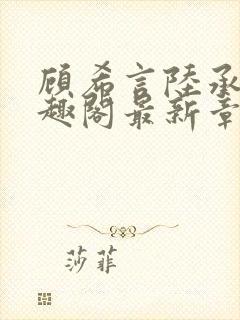 顾希言陸承
趣閣最新章
莎菲